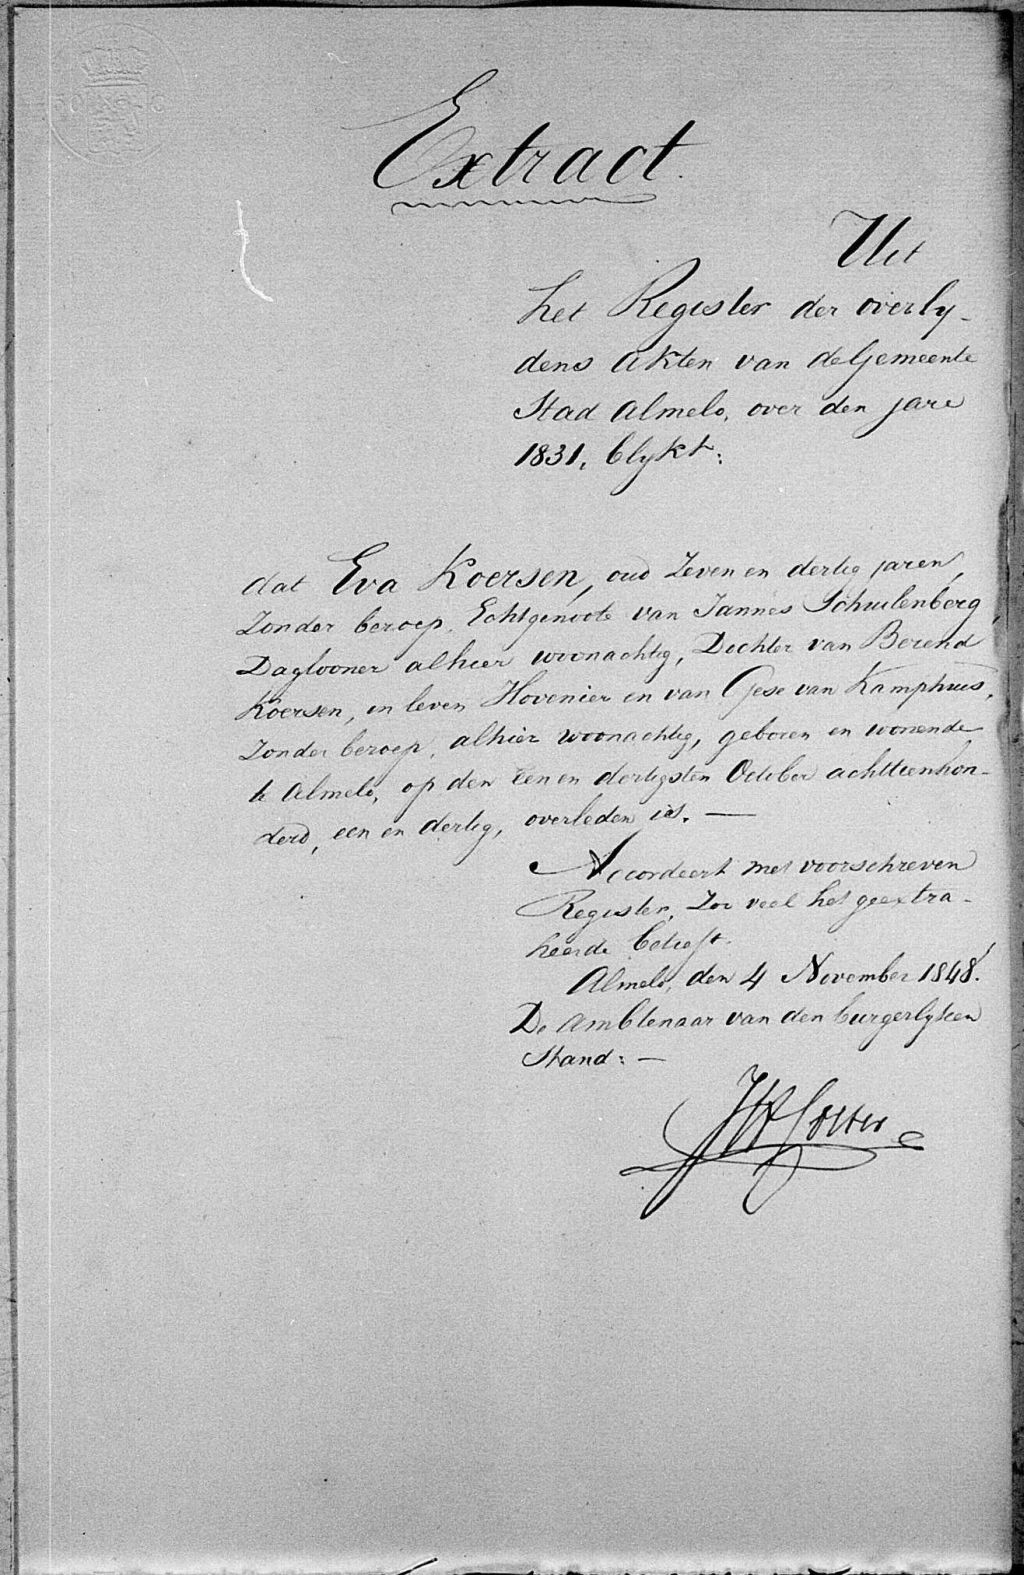 Extract.
Uit
het Register der overly-
dens akten van de Gemeente
Stad Almelo, over den jare
1831, blykt:
dat Eva Koersen, oud Zeven en dertig jaren,
Zonder beroep, Echtgenoote van Jannes Schuilenberg,
Daglooner alhier woonachtig, Dochter van Berend
Koersen, in leven Hovenier en van Gese van Kamphuis,
Zonder beroep, alhier woonachtig, geboren en wonende
te Almelo, op den een en dertigsten October achttienhon-
derd, een en dertig, overleden is. —
Accordeert met voorschreven
Register, Zoo veel het geextra-
heerde betreft.
Almelo, den 4 November 1848.
De Ambtenaar van den burgerlyken
Stand: —